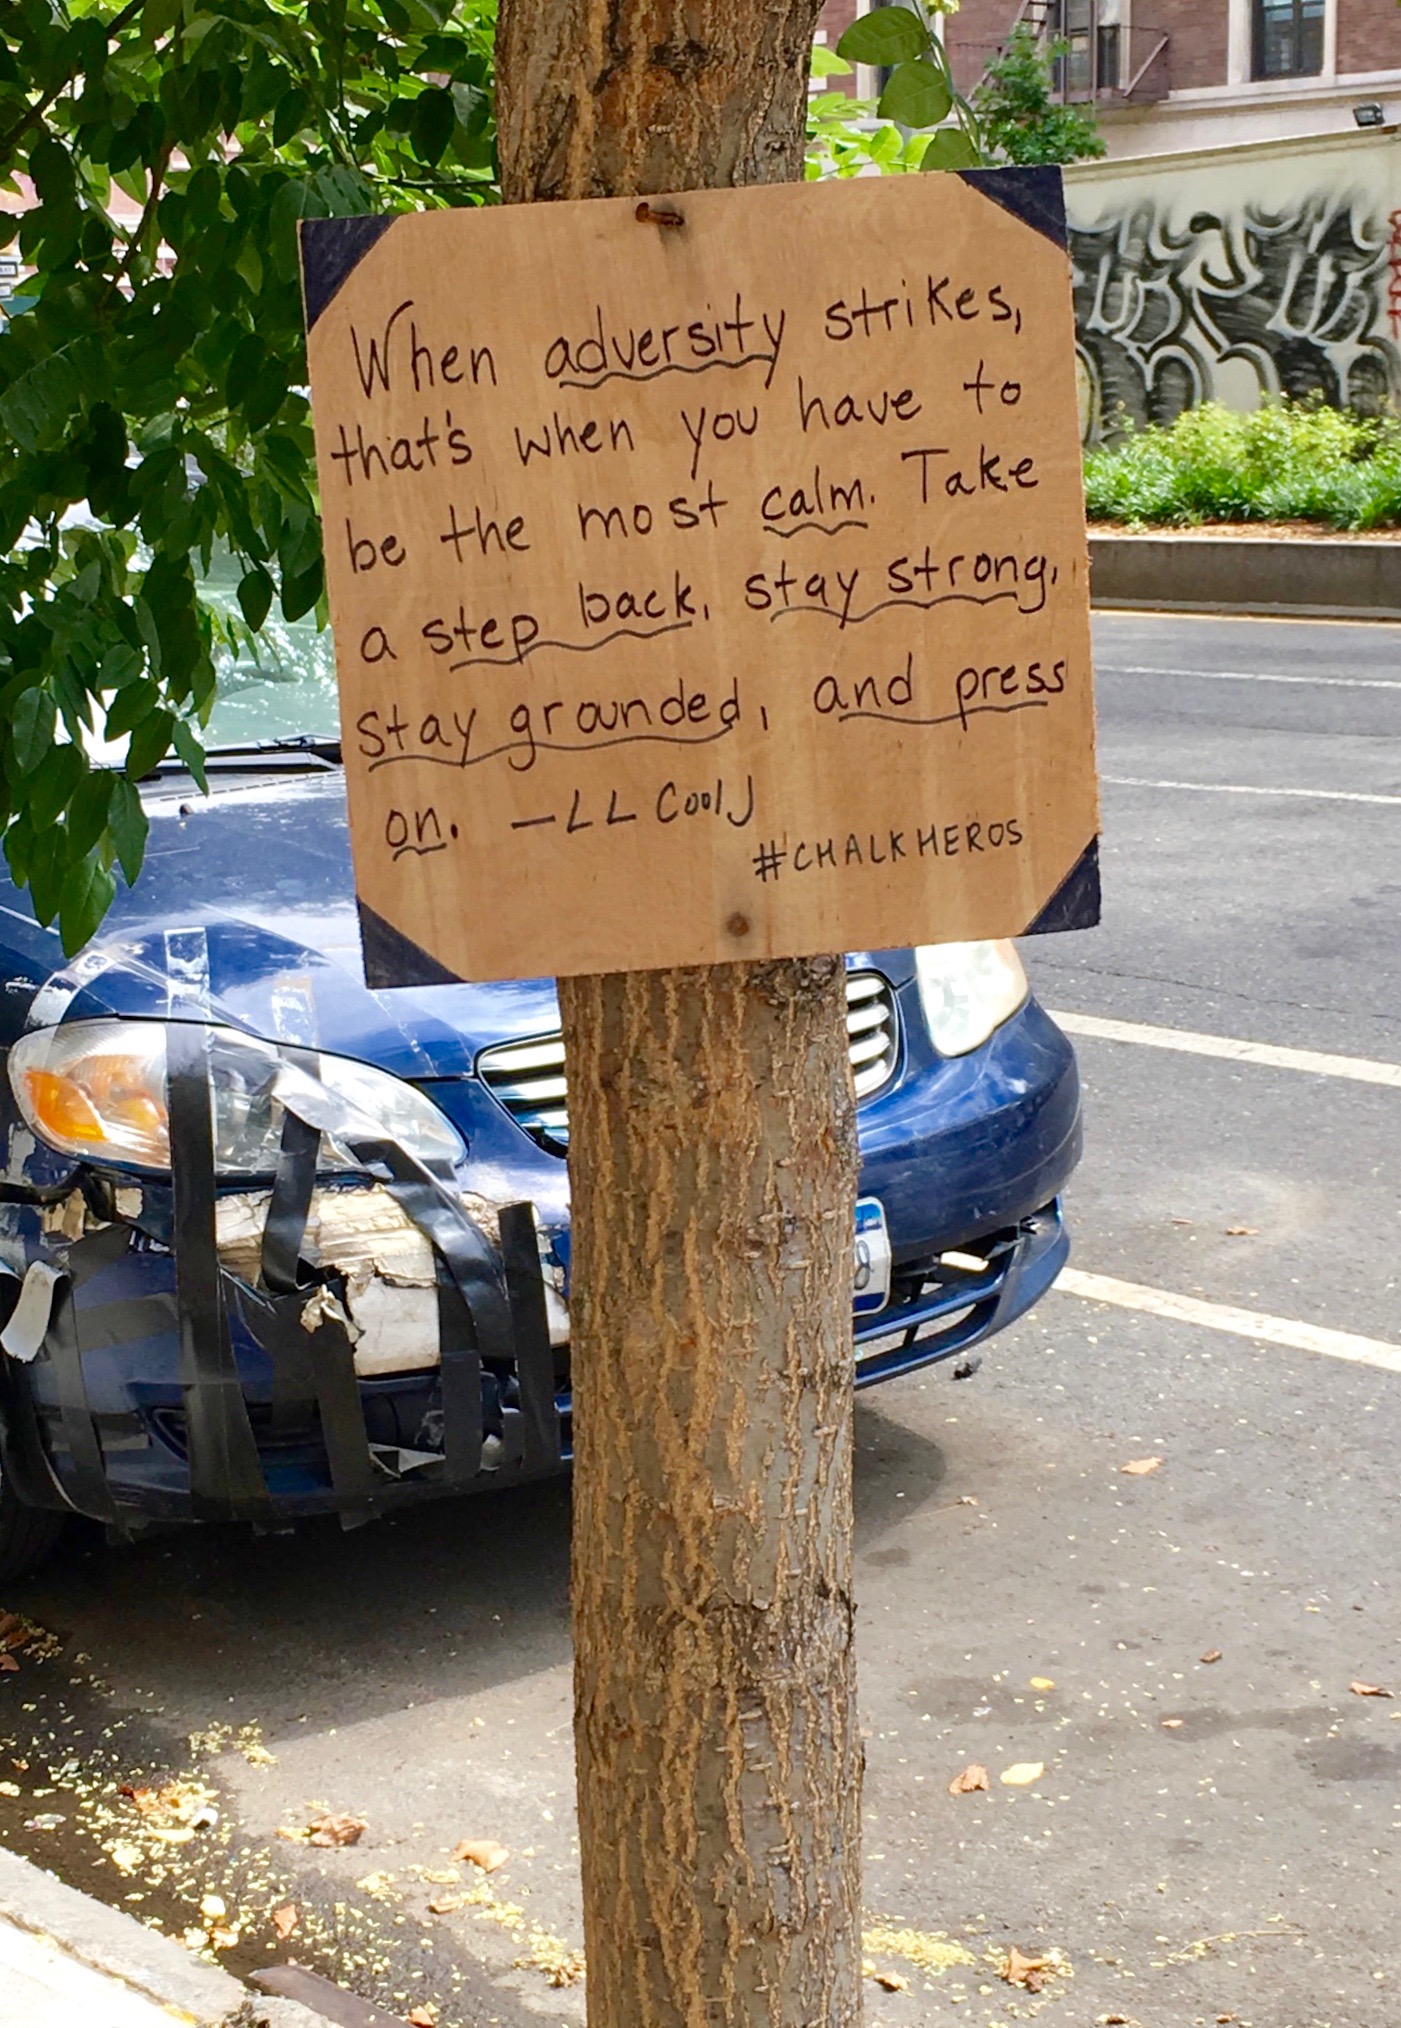 When adversity strikes,
that's when you have to
be the most calm. Take
a step back, stay strong,
stay grounded, and press
on. —LL Cool J
#CHALKHEROS
8